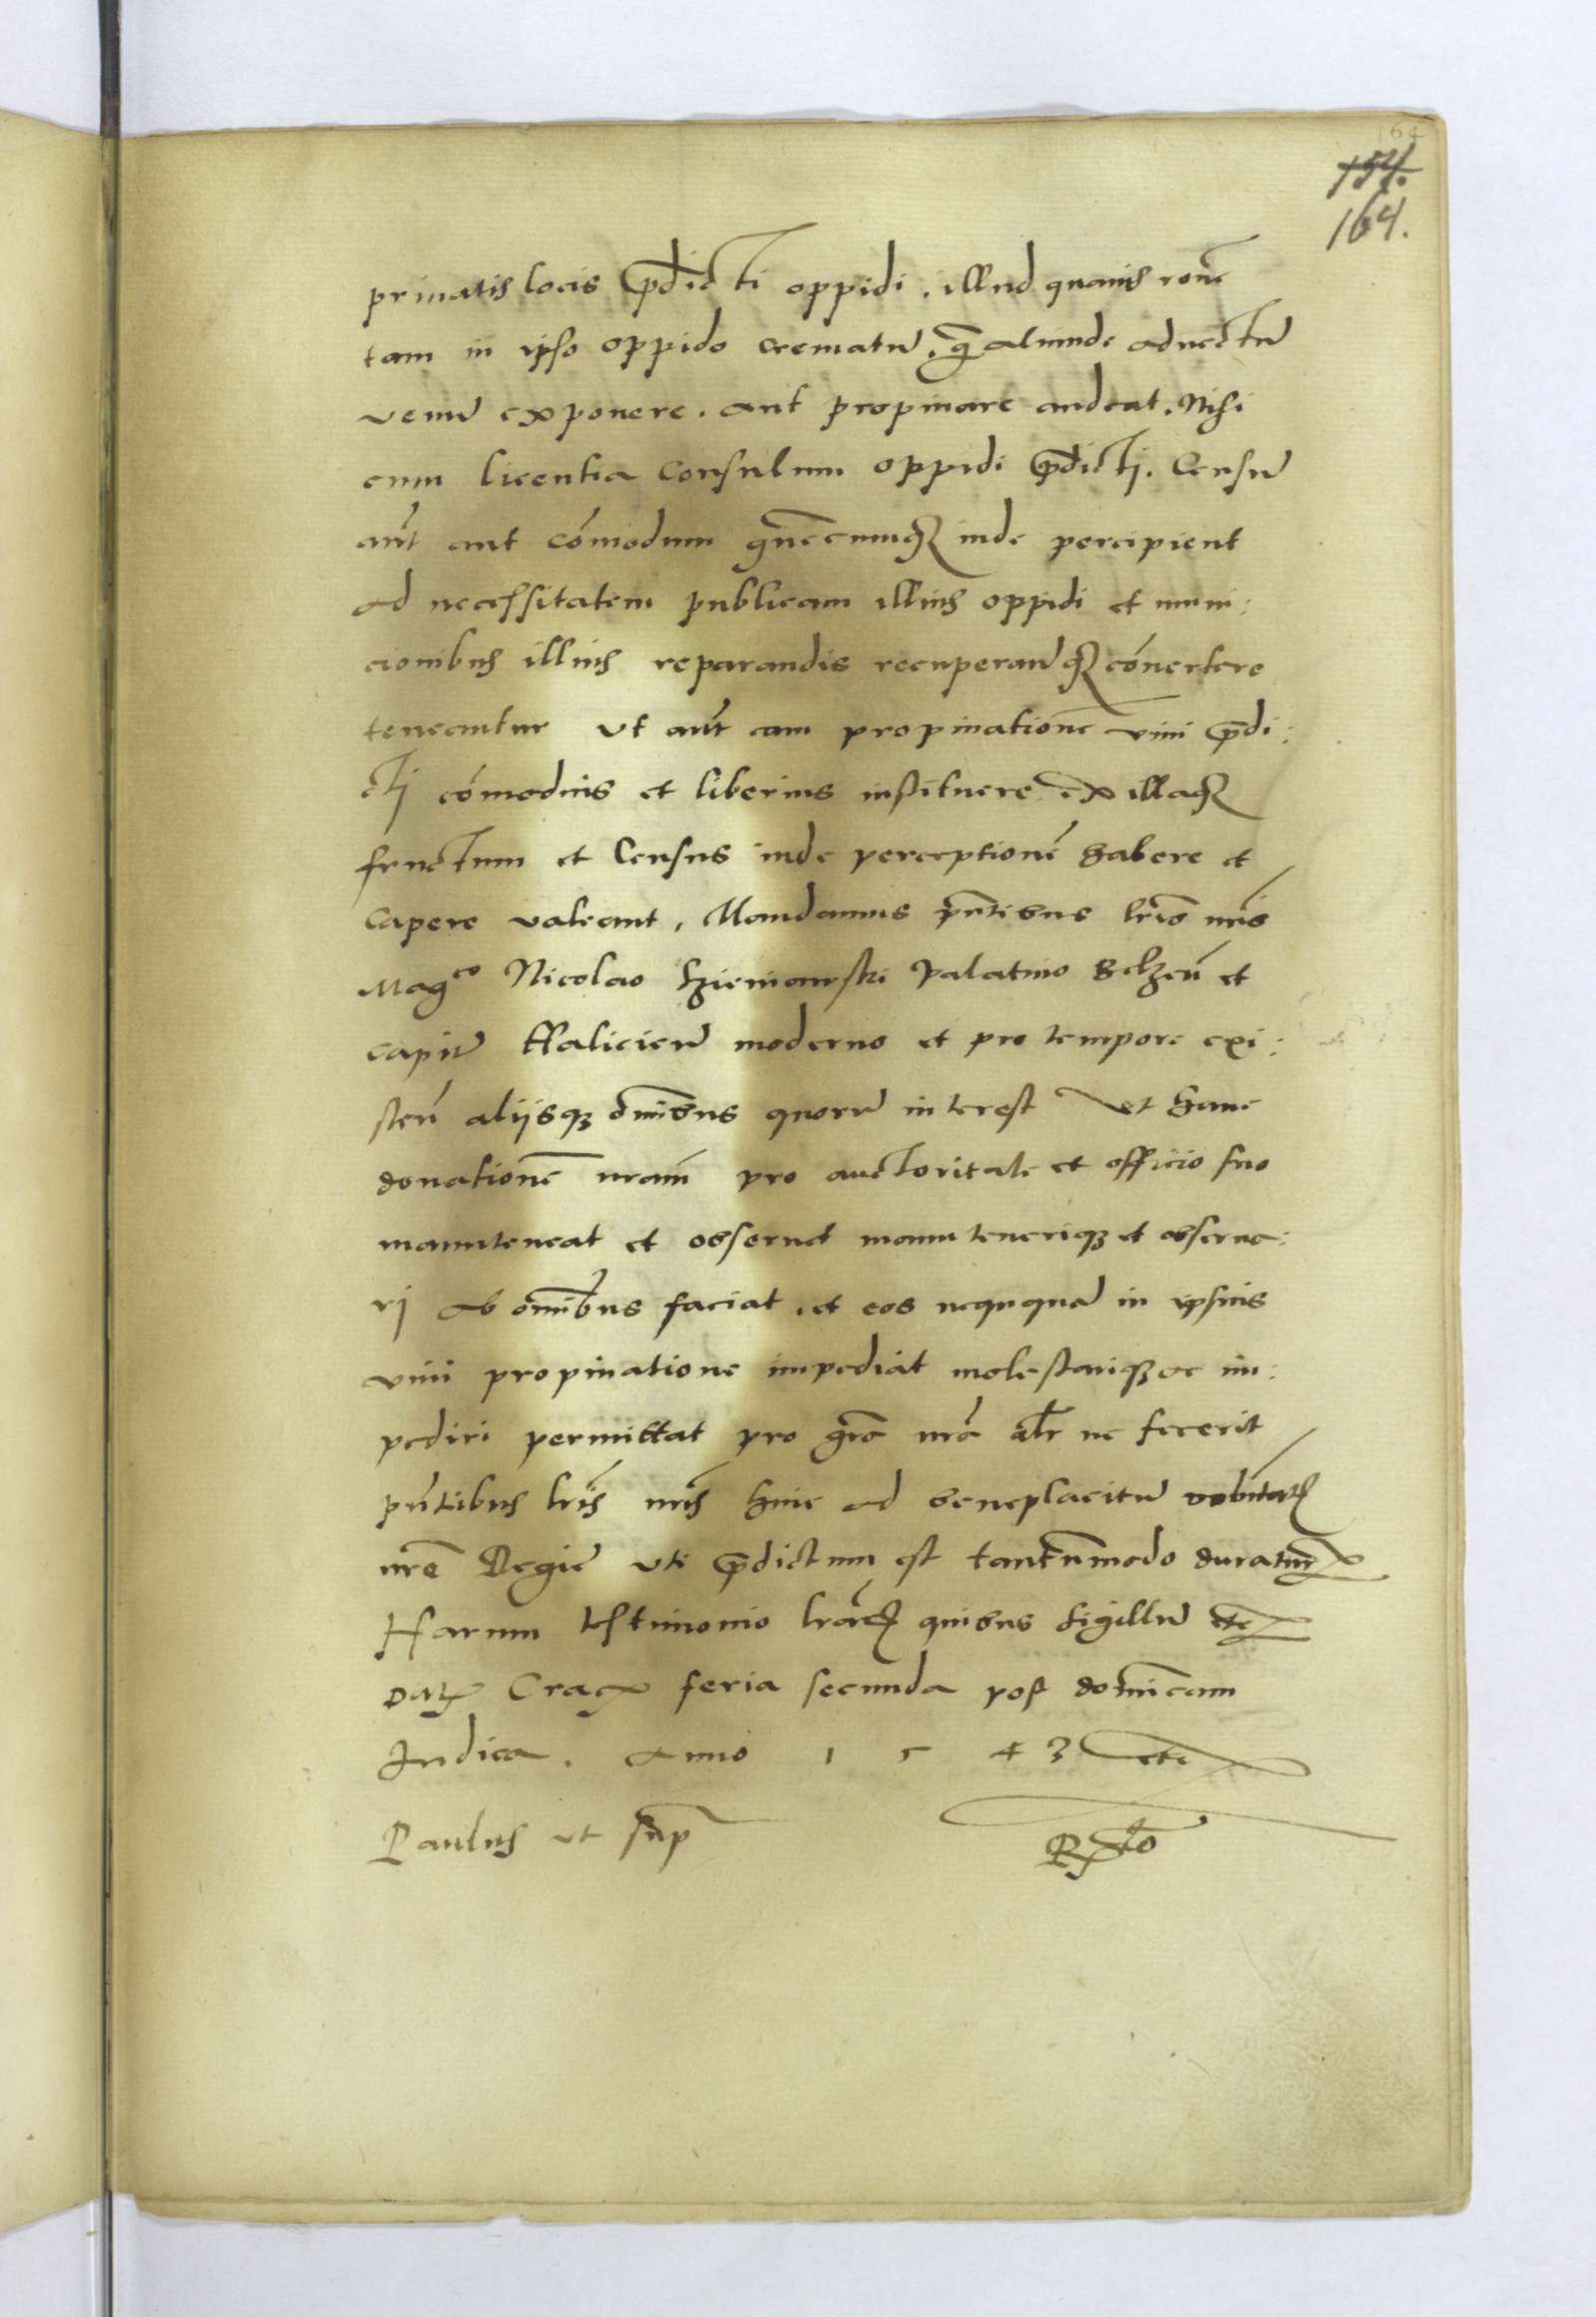 164
154.
164.
priuatis locis p̄dicti oppidi . illud quauis ronē
tam in ipso oppido crematū . q̄ aliunde aduectū
venū exponere . aut propinare audeat . Nisi
cum licentia Consulum oppidi p̄dictj . Censū
aūt aut cōmodum quēcumqꝫ inde percipient
ad necessitatem publicam illius oppidi et muni:
cionibus illius reparandis recuperandqꝫ cōuertere
teneantur Vt aūt eam propinationē vini p̄di:
ctj cōmodius et liberius instituere ex illaqꝫ
fructum et Census inde perceptionē habere et
capere valeant , Mandamus pn̄tibus lrīs nrīs
Mag^co Nicolao Sieniawski Palatino Belzeñ et
capit̄ Halicieñ moderno et pro tempore exi:
steñ alijsqꝫ om̄ibus quorū interest vt hanc
donationē nram̄ pro auctoritate et officio suo
manuteneat et obseruet manutenerique et obserua:
rj ab om̄ibus faciat . et eos nequaquā in ipsius
vini propinatione impediat molestariqꝫ ac im:
pediri permittat pro grā nrā alr̄ ne fecerit
pn̄tibus lrīs nrīs huic ad beneplacitū
nrē Regiē vti p̄dictum est tantummodo duratur
Harum testimonio lrarꝫ quibus sigillū etc
Datꝫ Crac feria secunda post dominicam
Iudica . Anno 1 5 4 3 etc
Paulus ut sup̄